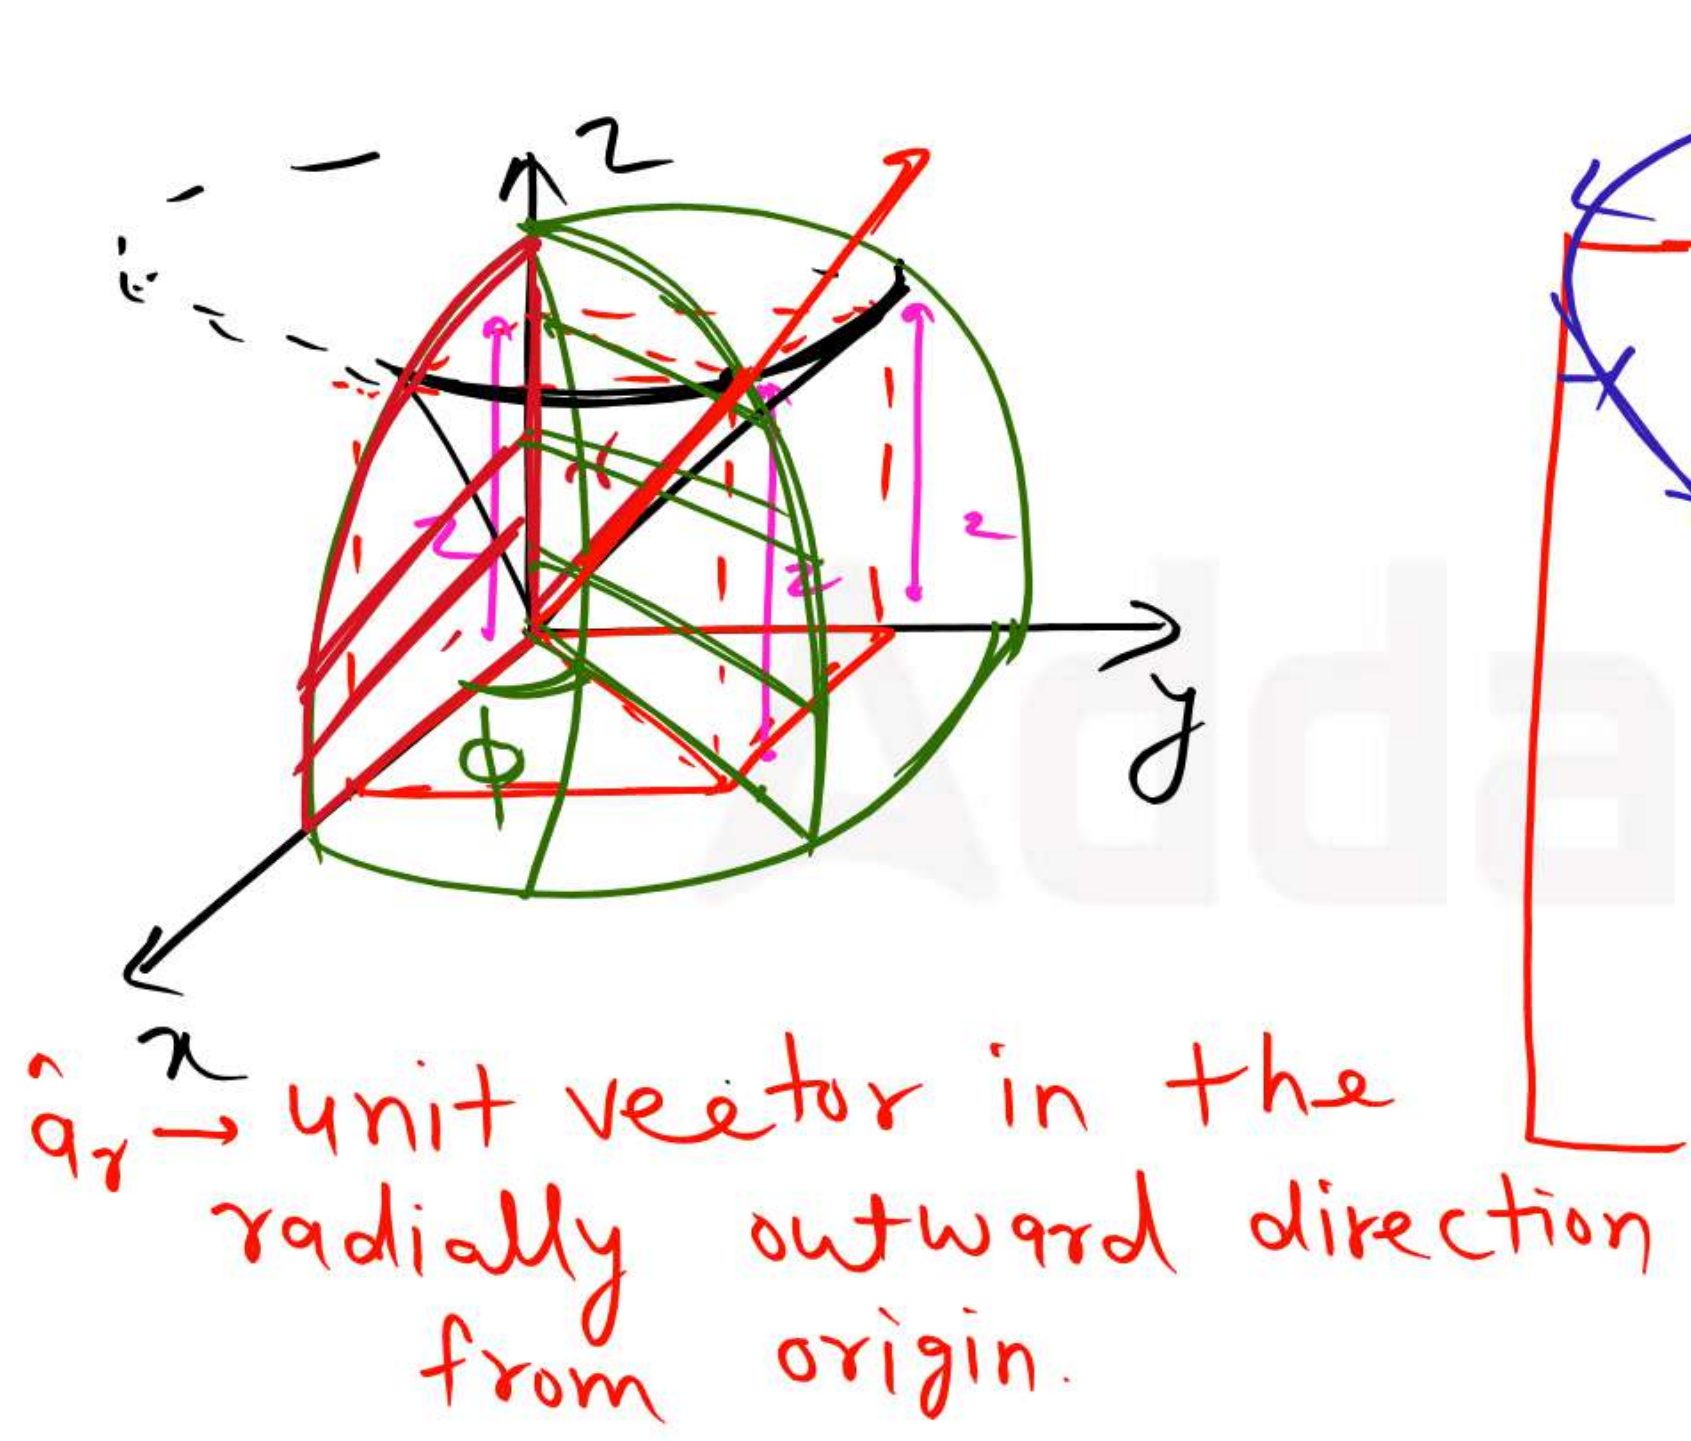 z
r
z
z
z
y
ϕ
x
âᵣ → unit vector in the
radially outward direction
from origin.
Adda